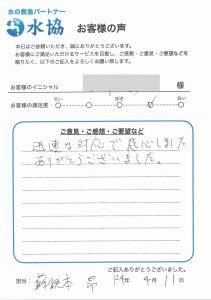 水の救急パートナー
水協 お客様の声
本日はご依頼いただき、誠にありがとうございます。
お客様にご満足いただけるサービスを目指し、ご感想・ご意見・ご要望などを
賜りたく、以下のご記入をよろしくお願い致します。
お客様のイニシャル 様
お客様の満足度 低い 普通 高い
ご意見・ご感想・ご要望など
迅速な対応で感心しました
ありがとうございました。
ご記入ありがとうございました。
担当: 昂 4月11日